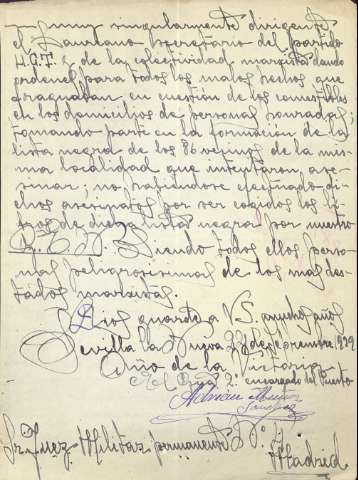 muy singularmente dirigente
el Laureano secretario del partido
U.G.T. y de la colectividad marxista dando
ordenes para todos los malos hechos que
fraguaban en cuestión de los comestibles
en los domicilios de personas honradas;
tomando parte en la formación de la
lista negra de los 86 vecinos de la mis
ma localidad que intentaron ase-
sinar; no habiendose efectuado di-
chos asesinatos por ser cogidos los
de dichas listas negras por nuestro
Siendo todos ellos perso-
nas peligrosisimas de los mas des-
tados marxistas.
Dios guarde a V.S. muchos años
Sevilla la Nueva 22 de Septiembre 1939
Año de la Victoria
El Guardia 2º encargado del Puesto
Adrian Muñoz
Sanchez
Sr. Juez Militar permanente Nº
Madrid